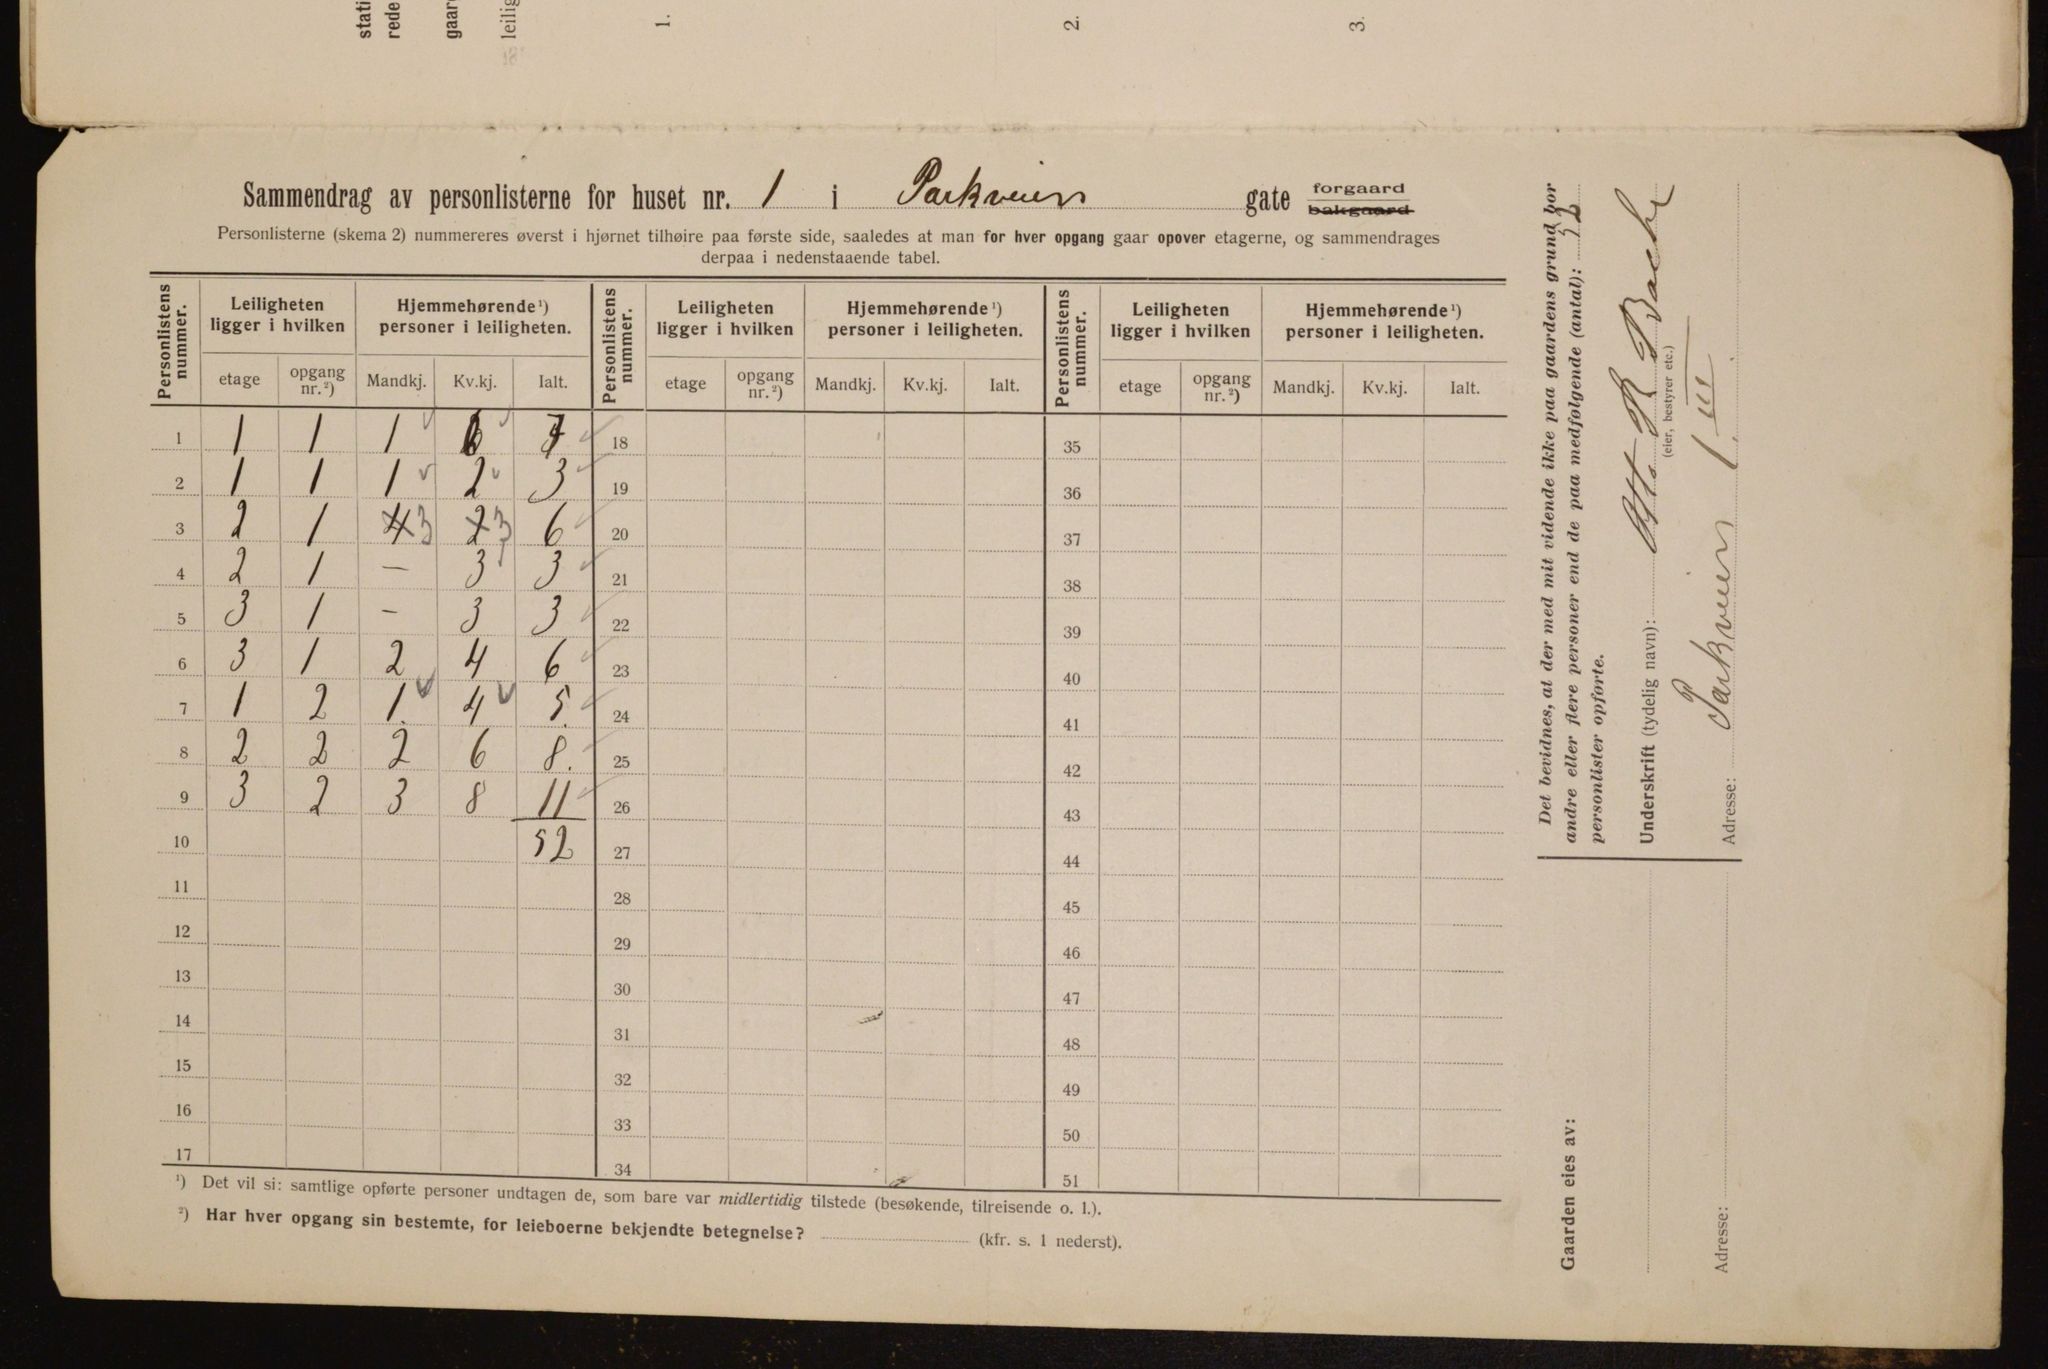 stati
rede
gaard
leilig
1.
2.
3.
Sammendrag av personlisterne for huset nr. 1 i Parkveien gate forgaard bakgaard
Personlisterne (skema 2) nummereres øverst i hjørnet tilhøire paa første side, saaledes at man for hver opgang gaar opover etagerne, og sammendrages
derpaa i nedenstaaende tabel.
Personlistens nummer. Leiligheten ligger i hvilken Hjemmehørende ¹) personer i leiligheten. Personlistens nummer. Leiligheten ligger i hvilken Hjemmehørende ¹) personer i leiligheten. Personlistens nummer. Leiligheten ligger i hvilken Hjemmehørende ¹) personer i leiligheten.
etage opgang nr. ²) Mandkj. Kv.kj. Ialt. etage opgang nr. ²) Mandkj. Kv.kj. Ialt. etage opgang nr. ²) Mandkj. Kv.kj. Ialt.
1 1 1 1 6 7 18 35
2 1 1 1 2 3 19 36
3 2 1 4 3 2 3 6 20 37
4 2 1 — 3 3 21 38
5 3 1 — 3 3 22 39
6 3 1 2 4 6 23 40
7 1 2 1. 4 5. 24 41
8 2 2 2 6 8. 25 42
9 3 2 3 8 11 26 43
10 52 27 44
11 28 45
12 29 46
13 30 47
14 31 48
15 32 49
16 33 50
17 34 51
¹) Det vil si: samtlige opførte personer undtagen de, som bare var midlertidig tilstede (besøkende, tilreisende o. l.).
²) Har hver opgang sin bestemte, for leieboerne bekjendte betegnelse? (kfr. s. 1 nederst).
Det bevidnes, at der med mit vidende ikke paa gaardens grund bor
andre eller flere personer end de paa medfølgende (antal): 32
personlister opførte.
Underskrift (tydelig navn): Otto R Bache
(eier, bestyrer etc.)
Adresse: Parkveien 1. III
Gaarden eies av:
Adresse: